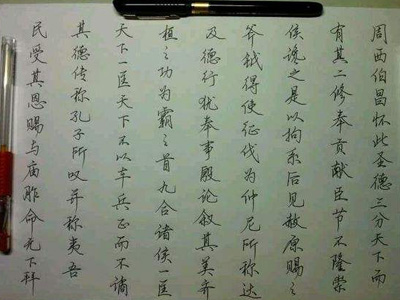 周西伯昌怀此圣德三分天下而
有其二修奉贡献臣节不隆荣
侯谗之是以拘系后见赦原赐之
斧钺得使征伐为仲尼所称达
及德行犹奉事殷论叙其美齐
桓之功为霸之首九合诸侯一匡
天下一匡天下不以兵车正而不谲
其德传称孔子所叹并称夷吾
民受其恩赐与庙胙命无下拜